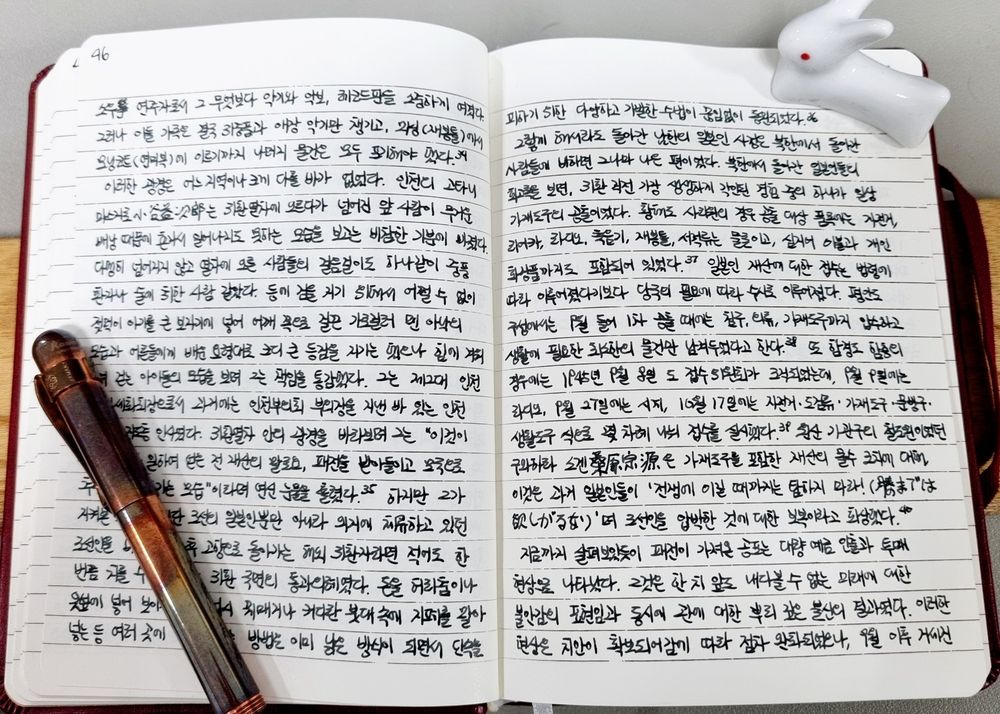 46
소수를 연주자로서 그 무엇보다 악기와 악보, 레코드판을 소중하게 여겼다.
그러나 이들 가족은 결국 최종품과 애장 악기만 챙기고, 의상(재봉틀)에서
오닝코트(연미복)에 이르기까지 나머지 물건은 모두 포기해야 했다.³⁴
이러한 광경은 어느 지역이나 크게 다를 바가 없었다. 인천의 고타니
마스지로小谷益次郎는 귀환열차에 오르다가 넘어진 앞 사람이 무거운
배낭 때문에 혼자서 일어나지도 못하는 모습을 보고는 비참한 기분에 빠졌다.
다행히 넘어지지 않고 열차에 오른 사람들의 걸음걸이도 하나같이 중풍
환자나 술에 취한 사람 같았다. 등에 짐을 지기 위해서 어쩔 수 없이
젖먹이 아기를 큰 보자기에 넣어 어깨 쪽으로 걸쳐 가로질러 멘 아낙의
모습과 어른들에게 배운 요령대로 크디 큰 등짐을 지기는 했으나 힘에 겨워
걷는 아이들의 모습을 보며 그는 책임을 통감했다. 그는 제2대 인천
세화회장으로서 과거에는 인천부의회 부의장을 지낸 바 있는 인천
인사였다. 귀환열차 안의 광경을 바라보며 그는 "이것이
일하여 얻은 전 재산의 말로요, 패전을 받아들이고 모국으로
가는 모습"이라며 연신 눈물을 흘렸다.³⁵ 하지만 그가
지켜본 단 조선의 일본인뿐만 아니라 외지에 체류하고 있던
조선인을 고향으로 돌아가는 해외 귀환자라면 적어도 한
번쯤 거를 수 귀환 국면의 통과의례였다. 돈을 허리춤이나
옷섶에 넣어 꿰매거나 커다란 붓대 속에 지폐를 말아
넣는 등 여러 곳에 방법은 이미 낡은 방식이 되면서 단속을
피하기 위한 다양하고 기발한 수법이 끊임없이 동원되었다.³⁶
그렇게 해서라도 돌아간 남한의 일본인 사정은 북한에서 돌아간
사람들에 비하면 그나마 나은 편이었다. 북한에서 돌아간 일본인들의
회고록을 보면, 귀환 직전 가장 생생하게 각인된 경험 중의 하나가 일상
가재도구의 공출이었다. 황해도 사리원의 경우 공출 대상 품목에는 자전거,
리어카, 라디오, 축음기, 재봉틀, 서적류는 물론이고, 심지어 이불과 개인
화장품까지도 포함되어 있었다.³⁷ 일본인 재산에 대한 접수는 법령에
따라 이루어졌다기보다 당국의 필요에 따라 수시로 이루어졌다. 평안도
구성에서는 9월 들어 1차 공출 때에는 침구, 의류, 가재도구까지 압수하고
생활에 필요한 최소한의 물건만 남겨두었다고 한다.³⁸ 또 함경도 함흥의
경우에는 1945년 9월 8일 도 접수위원회가 조직되었는데, 9월 9일에는
라디오, 9월 27일에는 서적, 10월 17일에는 자전거·도검류·가재도구·문방구·
생활도구 식으로 몇 차례 나눠 접수를 실시했다.³⁹ 원산 가관구의 철도원이었던
구와하라 소겐桑原宗源은 가재도구를 포함한 재산의 몰수 조치에 대해,
이것은 과거 일본인들이 '전쟁에 이길 때까지는 탐하지 마라!(勝まで"は
欲しがるな!)'며 조선인을 압박한 것에 대한 보복이라고 회상했다.⁴⁰
지금까지 살펴보았듯이 패전이 가져온 공포는 대량 예금 인출과 투매
현상으로 나타났다. 그것은 한 치 앞도 내다볼 수 없는 미래에 대한
불안감의 표현임과 동시에 관에 대한 뿌리 깊은 불신의 결과였다. 이러한
현상은 치안이 확보되어감에 따라 점차 완화되었으나, 9월 이후 거세진